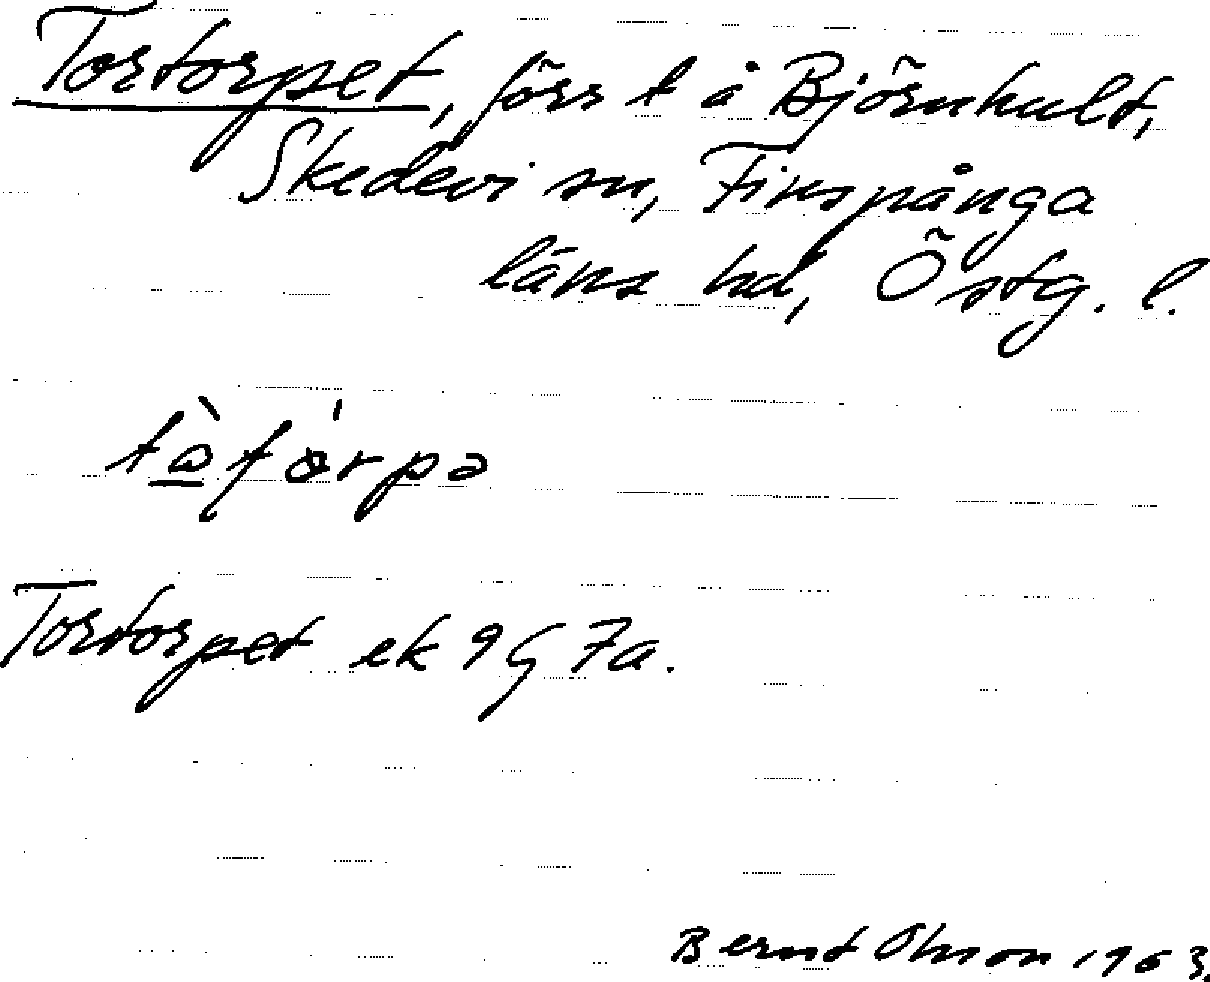 Tortorpet, förr t å Björnhult,
Skedevi sn, Finspånga
läns hd, Östg. l.
Tortorpet ek 9G 7a.
Bernt Olsson 1963.